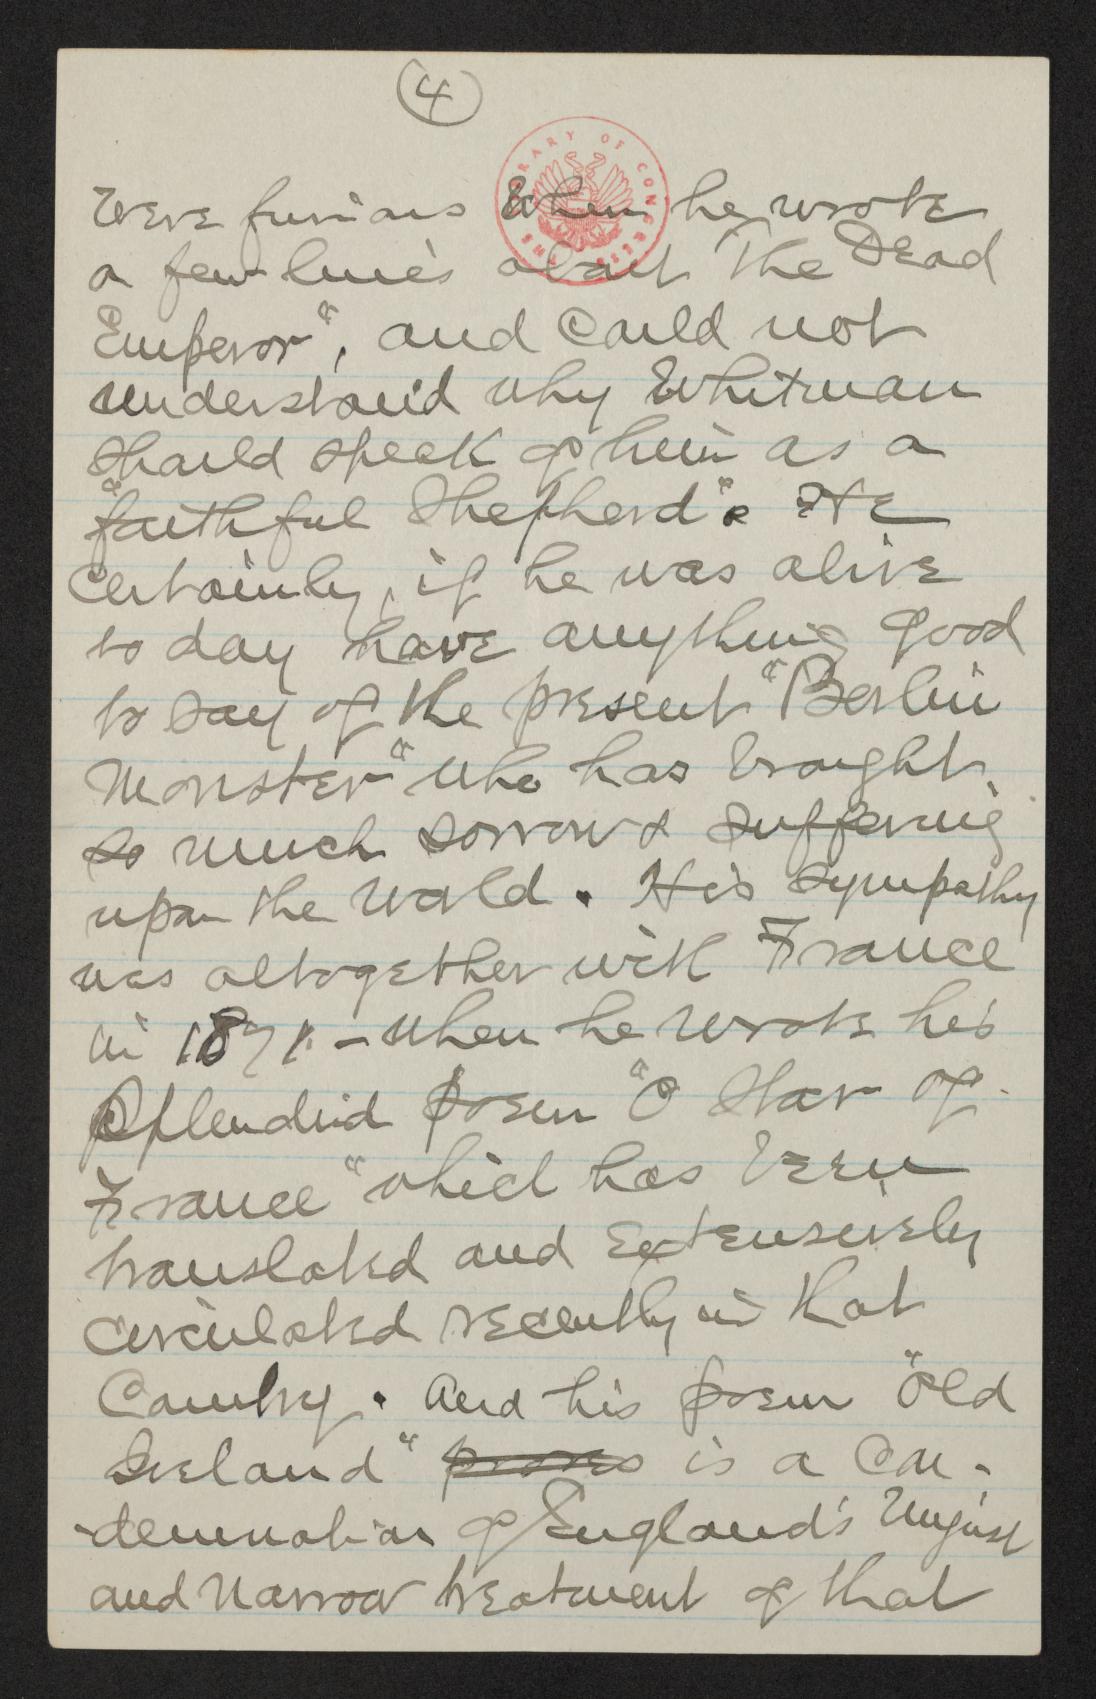 (4)
THE LIBRARY OF CONGRESS
were furious when he wrote
a few lines about "The Dead
Emperor", and could not
understand why Whitman
should speak of him as a
"faithful Shepherd". He
certainly, if he was alive
to day have anything good
to say of the present "Berlin
Monster" who has brought
so much sorrow & suffering
upon the world. His sympathy
was altogether with France
in 1871. - when he wrote his
Splendid poem "O Star of
France" which has been
translated and extensively
circulated recently in that
Country. And his poem "Old
Ireland" proves is a con-
-demnation of England's unjust
and narrow treatment of that